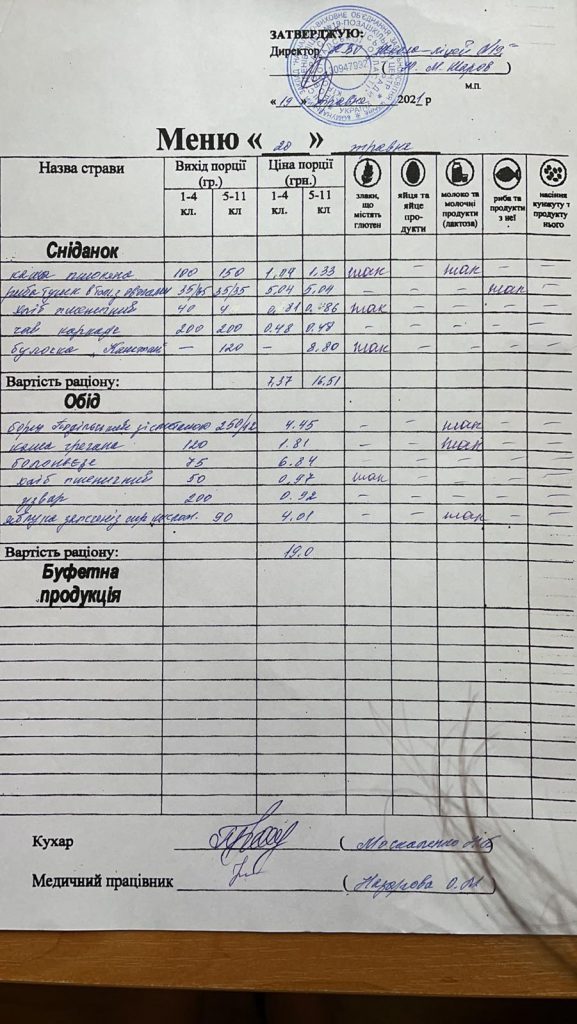 ЗАТВЕРДЖУЮ:
Директор ЗВО школа-ліцей №19"
( Ю. М. Шаров )
м.п.
« 19 » травня 2021 р
Меню « 20 » травня
Назва страви Вихід порції (гр.) Ціна порції (грн.) злаки, що містять глютен яйця та яйце продукти молоко та молочні продукти (лактоза) риба та продукти з неї насіння кунжуту т продукту нього
1-4 кл. 5-11 кл 1-4 кл. 5-11 кл
Сніданок
каша пшоняна 100 150 1,09 1,33 так – так – –
риба тушк в том з овочами 35/35 35/35 5,04 5,04 – – – так –
хліб пшеничний 40 4 так – – – –
чай каркаде 200 200 0.48 0.48 – – – – –
булочка „ – 120 – 8.80 так – – – –
Вартість раціону: 7,37 16.51
Обід
борщ Подільський зі сметаною 250/12 4.45 – – так – –
каша гречана 120 1.81 – – так – –
болоньєзе 75 6.84 – – – – –
хліб пшеничний 50 0,97 так – – – –
узвар 200 0.92 – – – – –
яблука запечені з сир. 90 4.01 – – так – –
Вартість раціону: 19.0
Буфетна
продукція
Кухар ( Москаленко )
Медичний працівник ( Назарова О.М )